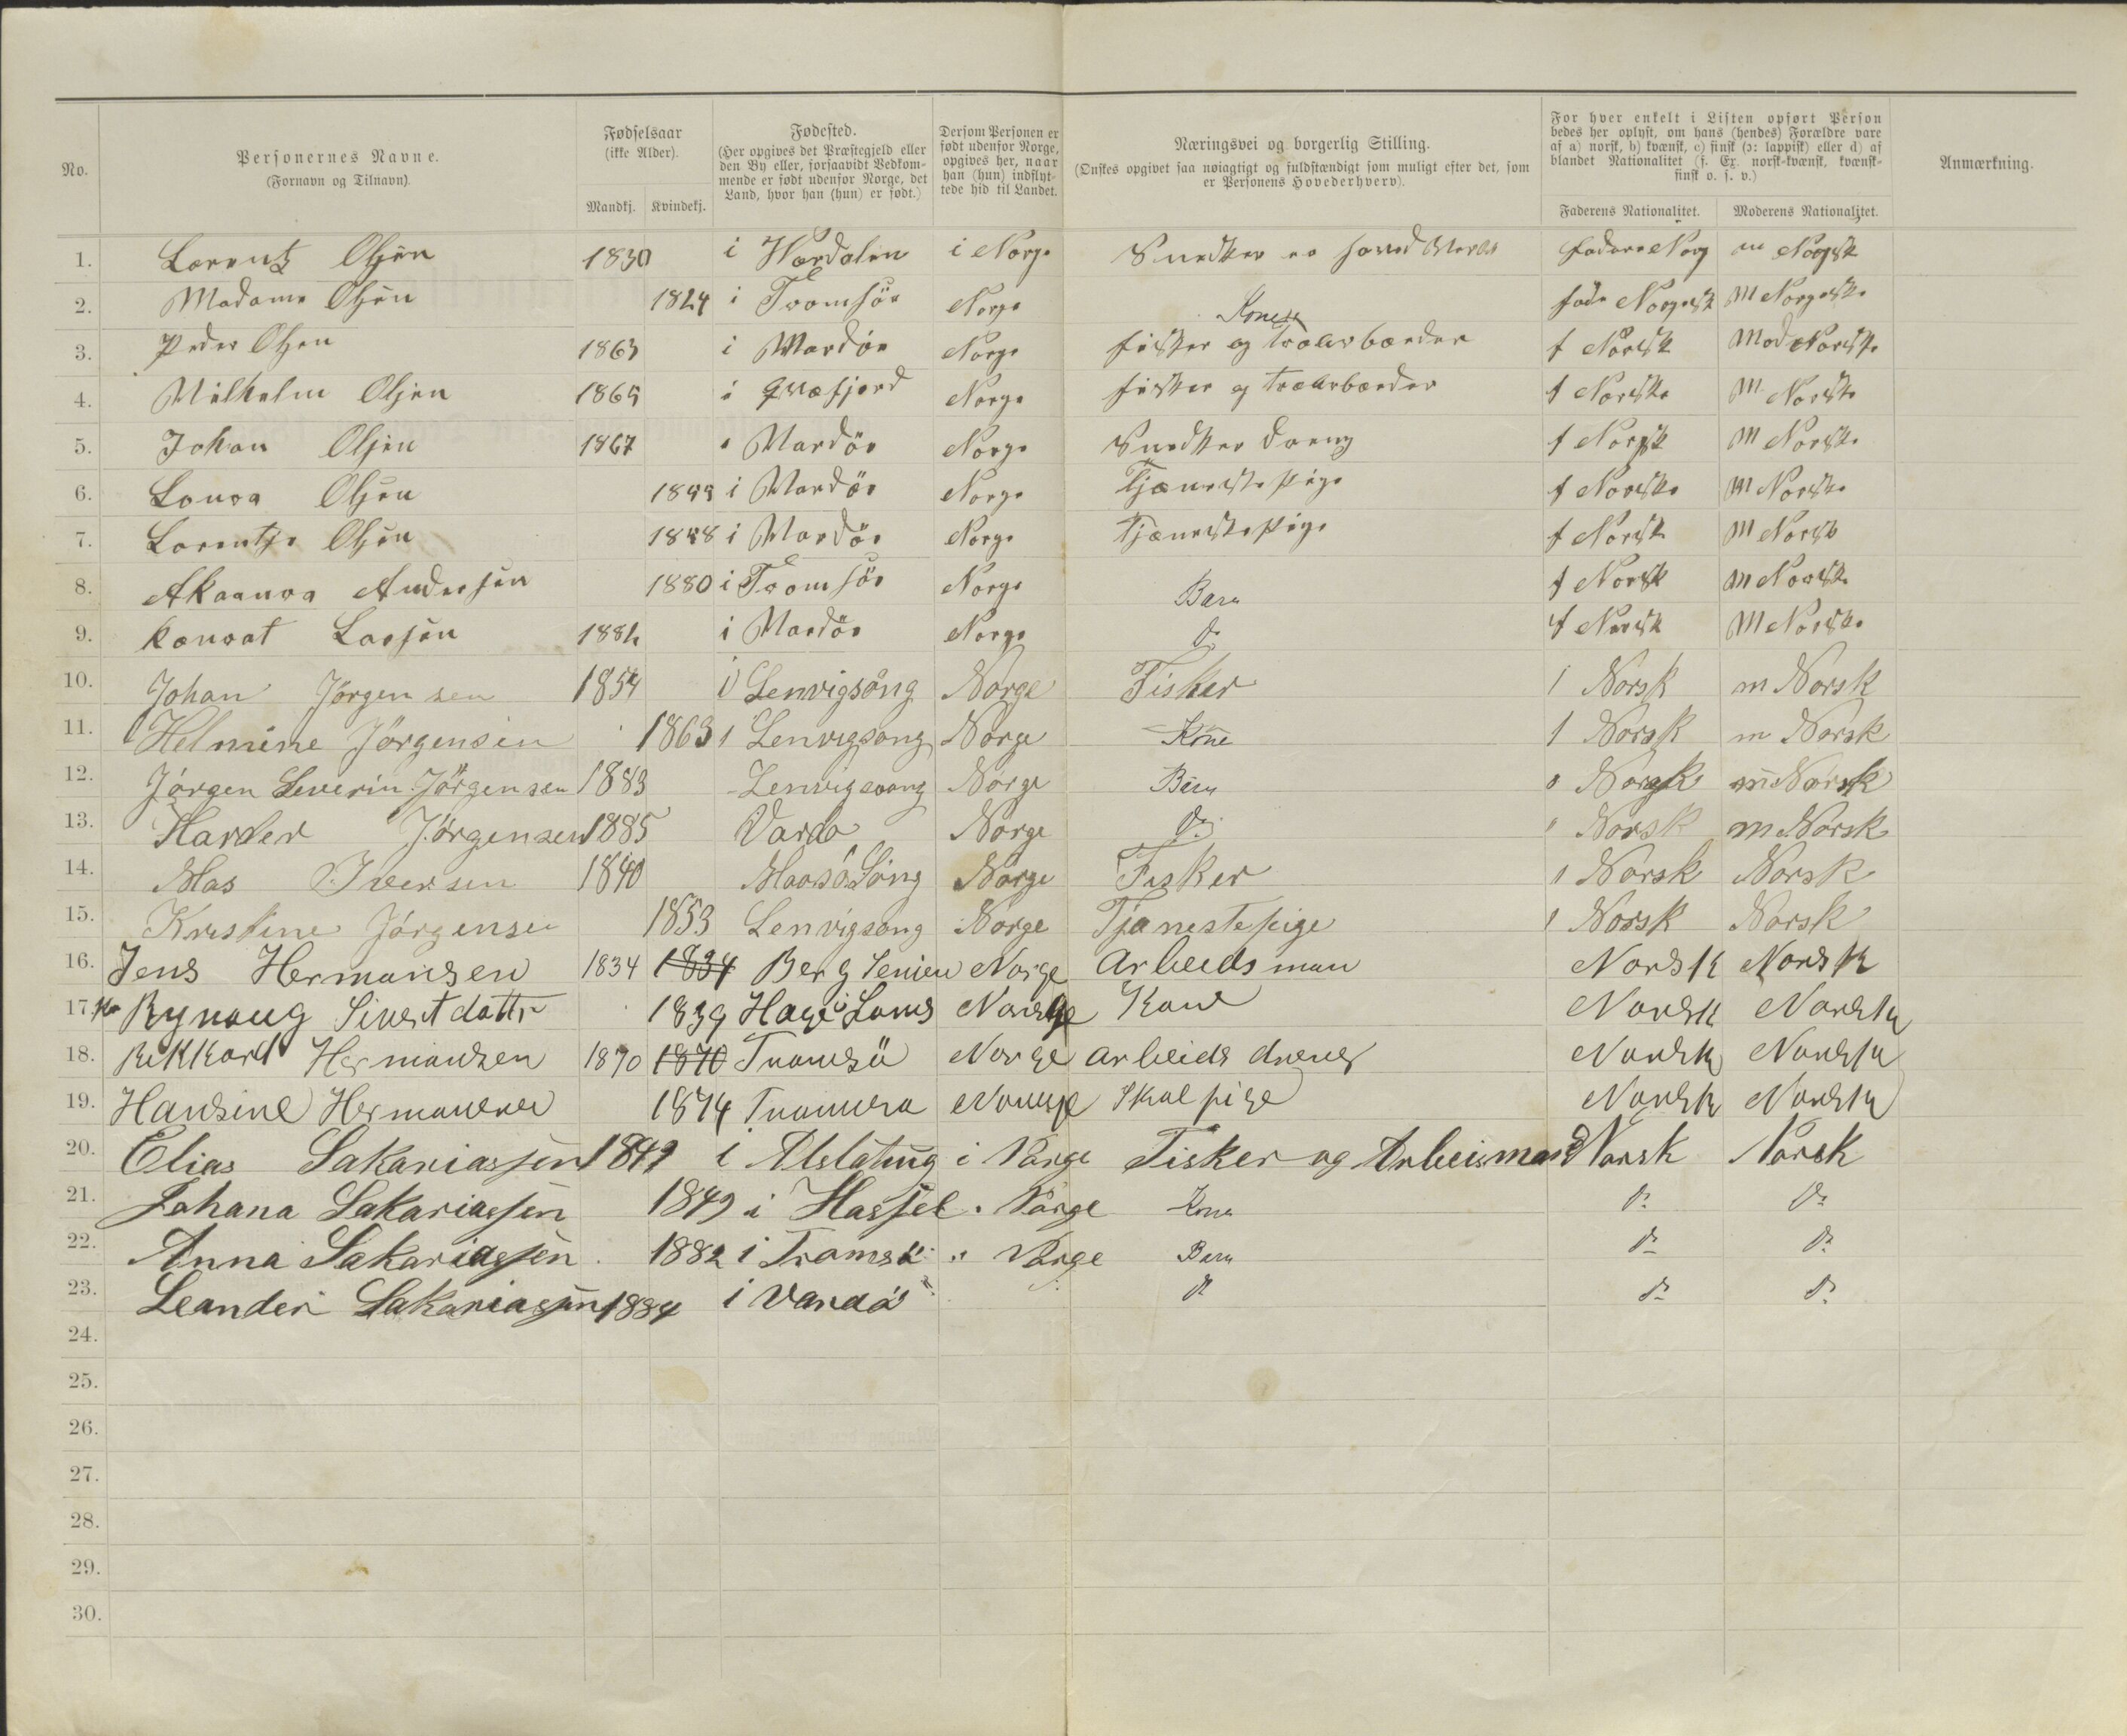 No.
Personernes Navne.
(Fornavn og Tilnavn).
Fødselsaar
(ikke Alder).
Mandkj. Kvindekj.
Fødested.
(Her opgives det Præstegjeld eller
den By eller, forsaavidt Vedkom-
mende er født udenfor Norge, det
Land, hvor han (hun) er født.)
Dersom Personen er
født udenfor Norge,
opgives her, naar
han (hun) indflyt-
tede hid til Landet.
Næringsvei og borgerlig Stilling.
(Ønskes opgivet saa nøiagtigt og fuldstændigt som muligt efter det, som
er Personens Hovederhverv).
For hver enkelt i Listen opført Person
bedes her oplyst, om hans (hendes) Forældre vare
af a) norsk, b) kvænsk, c) finsk (ɔ: lappisk) eller d) af
blandet Nationalitet (f. Ex. norsk-kvænsk, kvænsk-
finsk o. s. v.)
Faderens Nationalitet. Moderens Nationalitet.
Anmærkning.
1. Lorentz Olsen 1830 i Værdalen i Norge Snedker m Norgsk
2. Madame Olsen 1824 i Tromsöe Norge Kone fade Norgesk M Norgeske
3. Peder Olsen 1863 i Wardöe Norge fisker og f Norsk Mod Norske
4. Vilhelm Olsen 1865 i Qvæfjord Norge fisker og f Norske M Norske
5. Johan Olsen 1867 Vardöe Norge Snedker dreng f Norsk M Norske
6. Loura Olsen i Vardöe Norge Tjænestepige f Norske M Norske
7. Lorentse Olsen i Vardöe Norge Tjænestepige f Norsk M Norsk
8. Andersen 1880 i Tromsöe Norge Barn f Norsk M Norske
9. Larsen i Vardöe Norge Do f Norsk M Norske
10. Johan Jörgensen 1854 i Lenvigsöng Norge Fisker f Norsk m Norsk
11. Helmine Jörgensen 1863 i Lenvigsong Norge Kone f Norsk m Norsk
12. Jörgen Severin Jörgensen 1883 Lenvigsong Norge Barn Norsk m Norsk
13. Harder Jörgensen 1885 Vardö Norge Do Norsk m Norsk
14. Mas Iversen 1840 Maasö Söng Norge Fisker Norsk Norsk
15. Kristine Jörgensen 1853 Lenvigsong Norge Tjanestepige Norsk Norsk
16. Jens Hermansen 1834 1834 Berg Senien Norge Arbeidsman Norsk Norsk
17. Sivertdattr 1839 Norge Kone Norsk Norsk
18. Rikkard Hermansen 1870 1870 Tromsö Norge arbeids dreng Norsk Norsk
19. Hansine Hermansen 1874 Tromsö Norge Skolepige Norsk Norsk
20. Elias Sakariassen 1849 i Alslahug i Norge Fisker og Arbeismand Norsk Norsk
21. Johana Sakariassen 1849 i Hassel Norge Kone Do Do
22. Anna Sakariassen 1882 i Tromsö Norge Barn Do Do
23. Leander Sakariassen 1884 i Vardö Do Do Do
24.
25.
26.
27.
28.
29.
30.